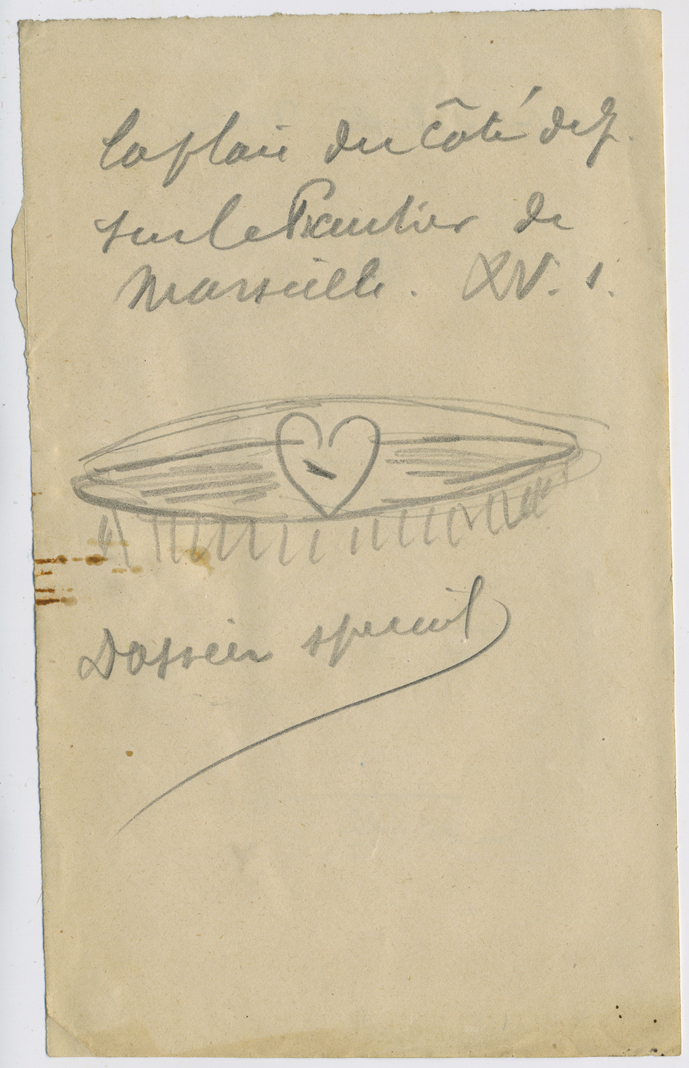 la plaie du côté de J.
sur le Psautier de
Marseille. XV. s.
Dossier special